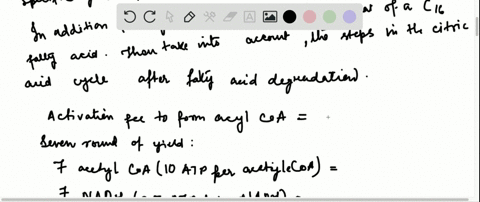 In addition of a C16
fatty acid. Than take into account, the steps in the citric
acid cycle after fatty acid degradation).
Activation fee to form acyl CoA =
Seven round of yield:
7 acetyl CoA (10 ATP per acetyle CoA) =
7 NADH